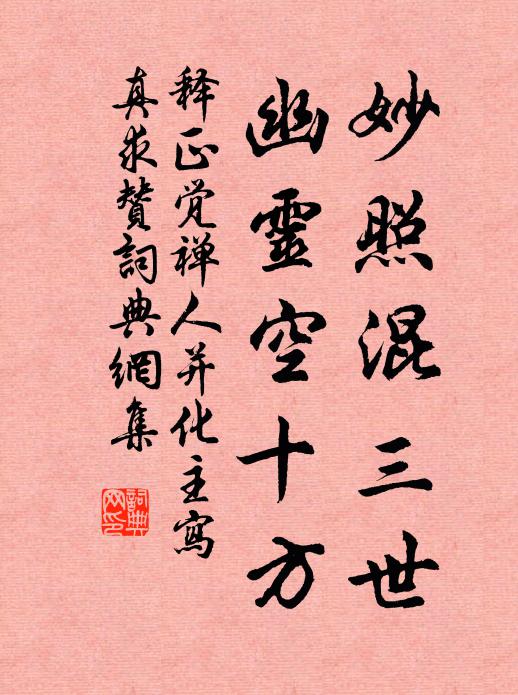 妙照混三世
幽靈空十方
释正觉禅人并化主寫
真求赞詞典網集
詞典
网印